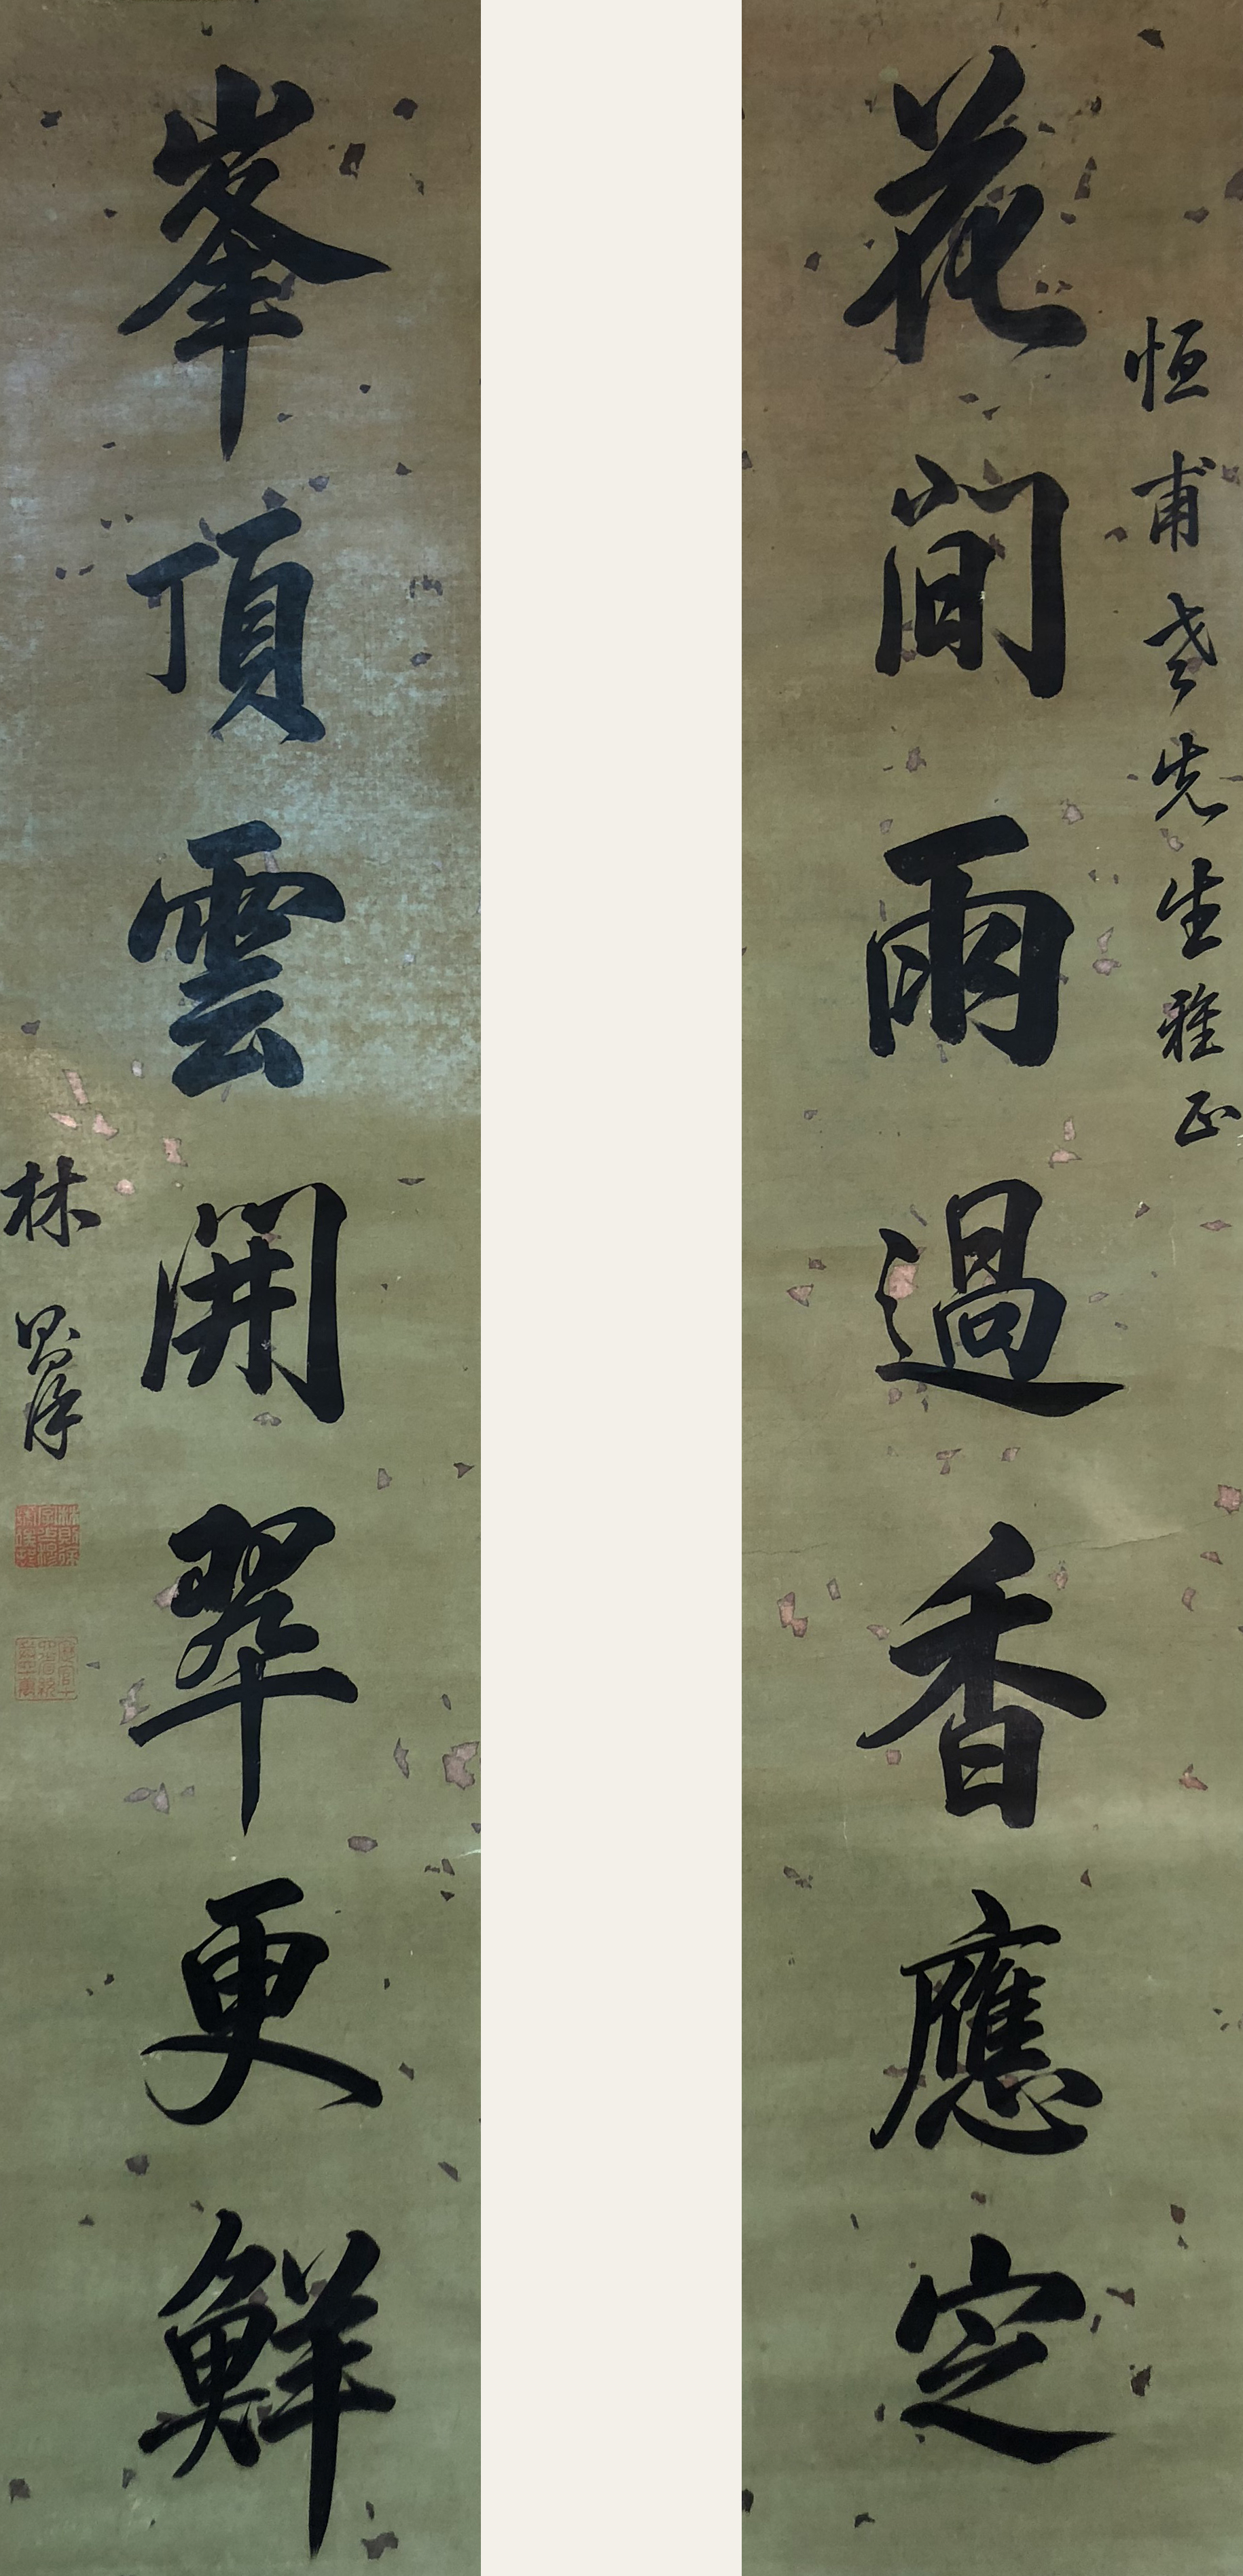 恒甫老先生雅正
花間雨過香應定
峯頂雲開翠更鮮
林則徐